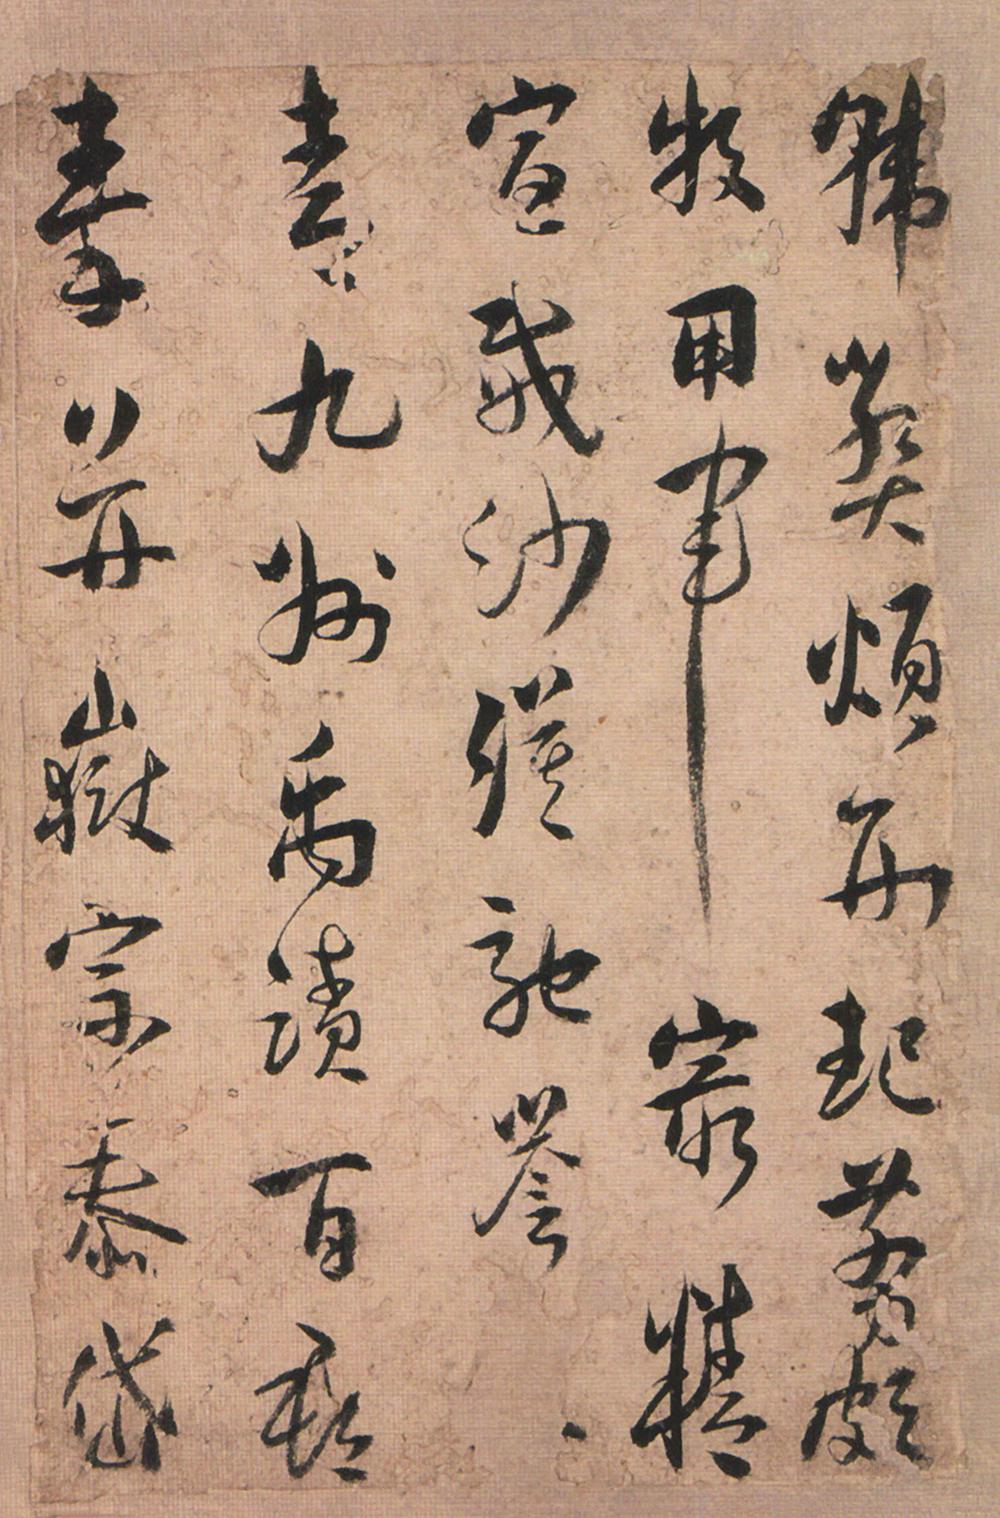 韓弊煩刑起翦頗
牧用軍最精
宣威沙漠馳譽
青九州禹蹟百郡
秦并嶽宗泰岱